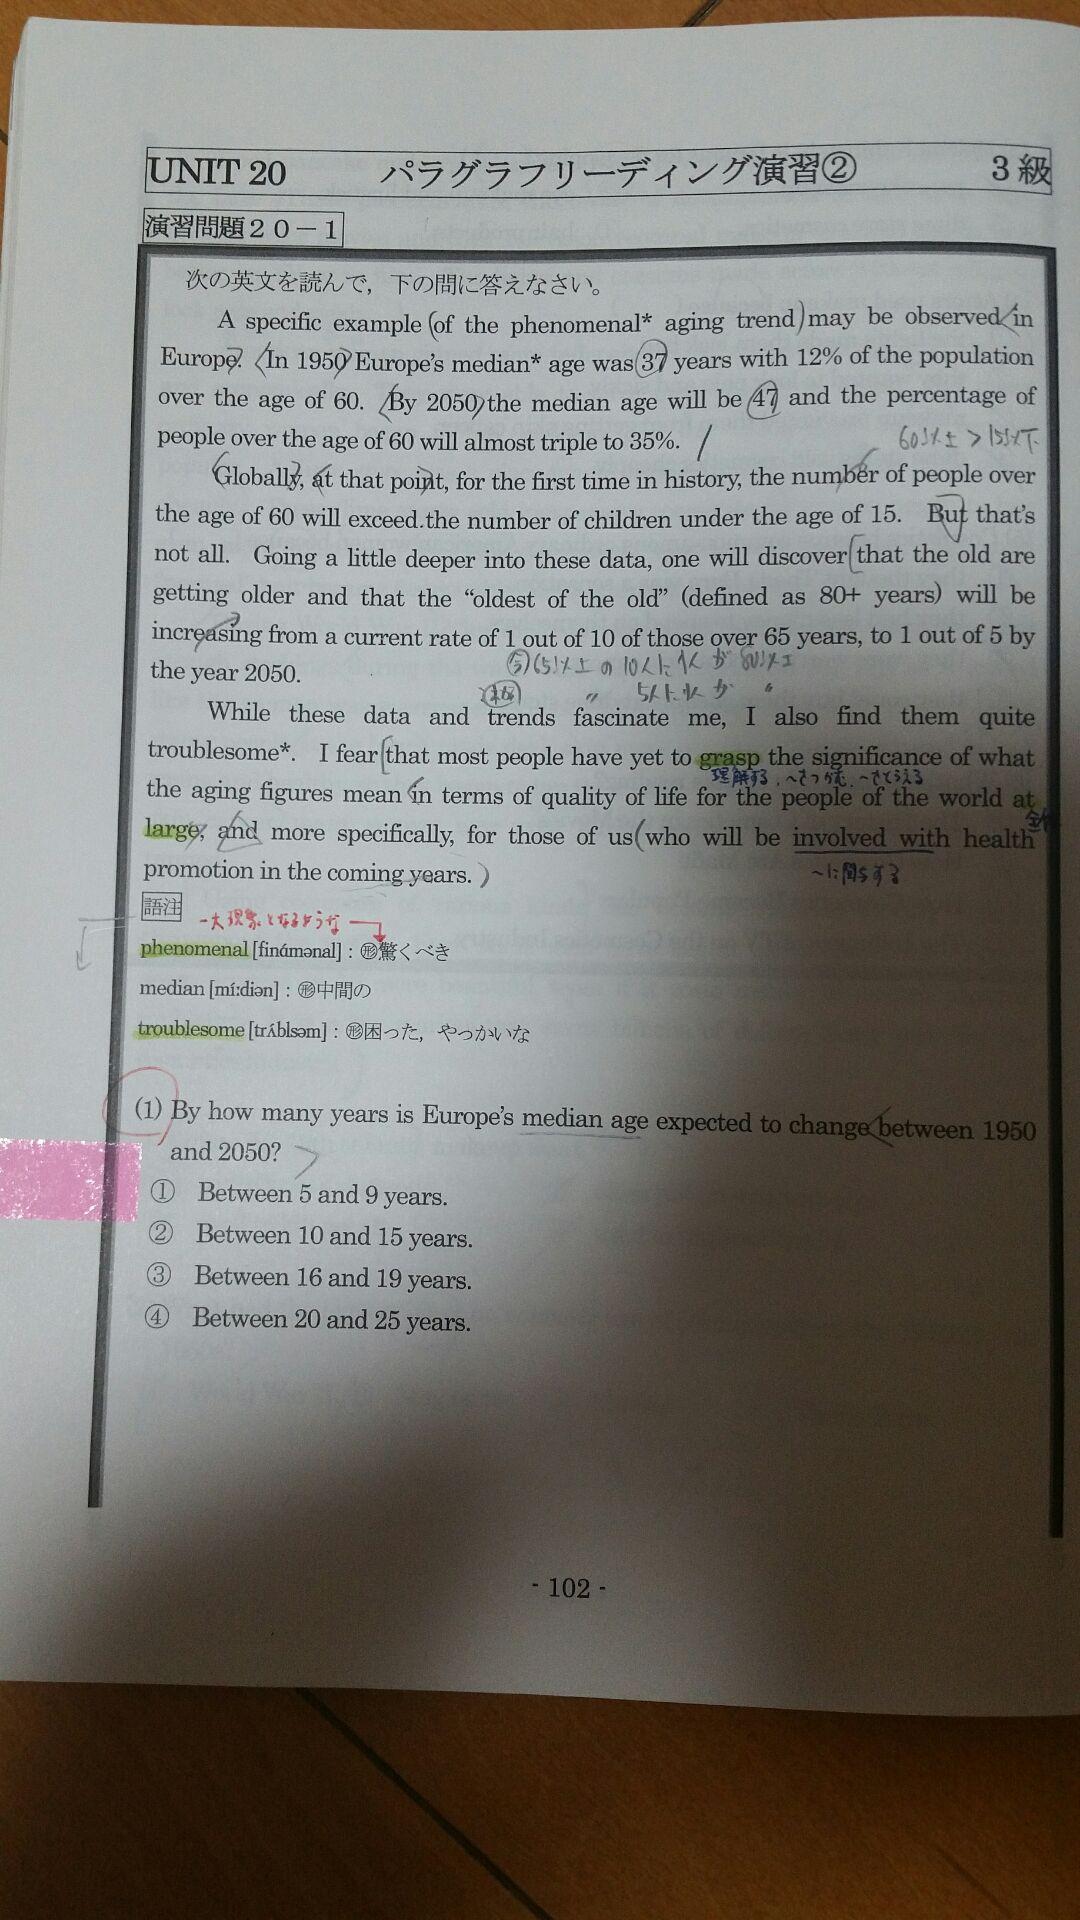 UNIT 20 パラグラフリーディング演習② 3級
演習問題20-1
次の英文を読んで，下の問に答えなさい。
A specific example (of the phenomenal* aging trend) may be observed in
Europe. In 1950 Europe's median* age was 37 years with 12% of the population
over the age of 60. By 2050 the median age will be 47 and the percentage of
people over the age of 60 will almost triple to 35%.
60以上 > 15以下
Globally, at that point, for the first time in history, the number of people over
the age of 60 will exceed the number of children under the age of 15. But that's
not all. Going a little deeper into these data, one will discover [that the old are
getting older and that the “oldest of the old” (defined as 80+ years) will be
increasing from a current rate of 1 out of 10 of those over 65 years, to 1 out of 5 by
the year 2050.
65以上の10人に1人が80以上
〃 5人に1人が 〃
While these data and trends fascinate me, I also find them quite
troublesome*. I fear [that most people have yet to grasp the significance of what
理解する、～をつかむ、～をとらえる
the aging figures mean in terms of quality of life for the people of the world at
large, and more specifically, for those of us (who will be involved with health
～に関与する
promotion in the coming years.)
語注
大現象となるような
phenomenal [finámənal]：㊒驚くべき
median [mí:diən]：㊒中間の
troublesome [trʌ́blsəm]：㊒困った，やっかいな
(1) By how many years is Europe's median age expected to change between 1950
and 2050?
① Between 5 and 9 years.
② Between 10 and 15 years.
③ Between 16 and 19 years.
④ Between 20 and 25 years.
- 102 -